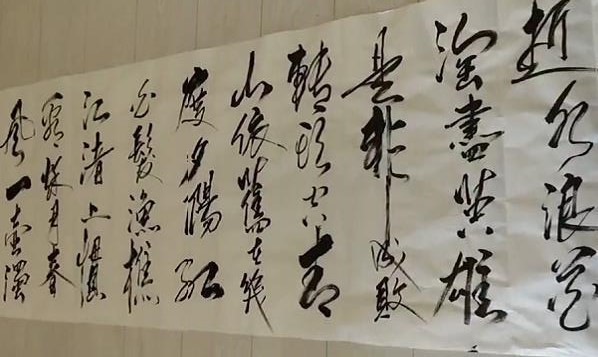 逝水浪花
淘盡英雄
是非成敗
轉頭空青
山依舊在幾
度夕陽紅
白髮漁樵
江渚上慣
看秋月春
風一壺濁